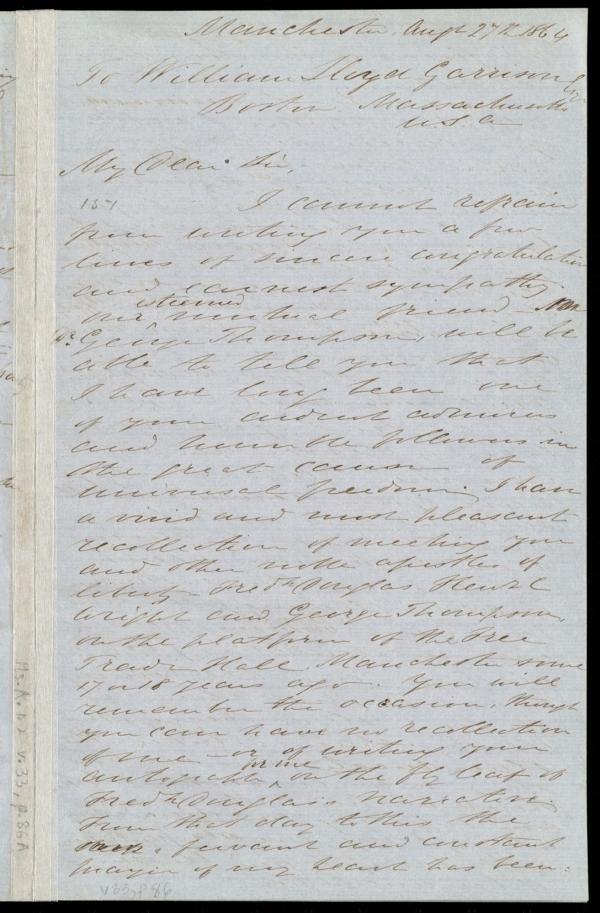 Manchester, Augt 27th 1864
To William Lloyd Garrison Esq
Boston Massachusetts
U.S.A
My Dear Sir,
I cannot refrain
from writing you a few
lines of sincere congratulation
and earnest sympathy.
our esteemed mutual friend
Mr George Thompson, will be
able to tell you that
I have long been one
of your ardent admirers
and humble followers in
the great cause of
universal freedom. I have
a vivid and most pleasant
recollection of meeting you
and other noble apostles of
liberty Fredk Douglas Henry C
Wright and George Thompson,
on the platform of the Free
Trade Hall, Manchester some
17 or 18 years ago. You will
remember the occasion, though
you can have no recollection
of me – or of writing your
autograph for me on the fly leaf of
Fredk Douglas's narrative.
From that day to this the
fervant and constant
prayer of my heart has been:
151
Ms.A.1.2 v.33, p.86A
v.33, p 86